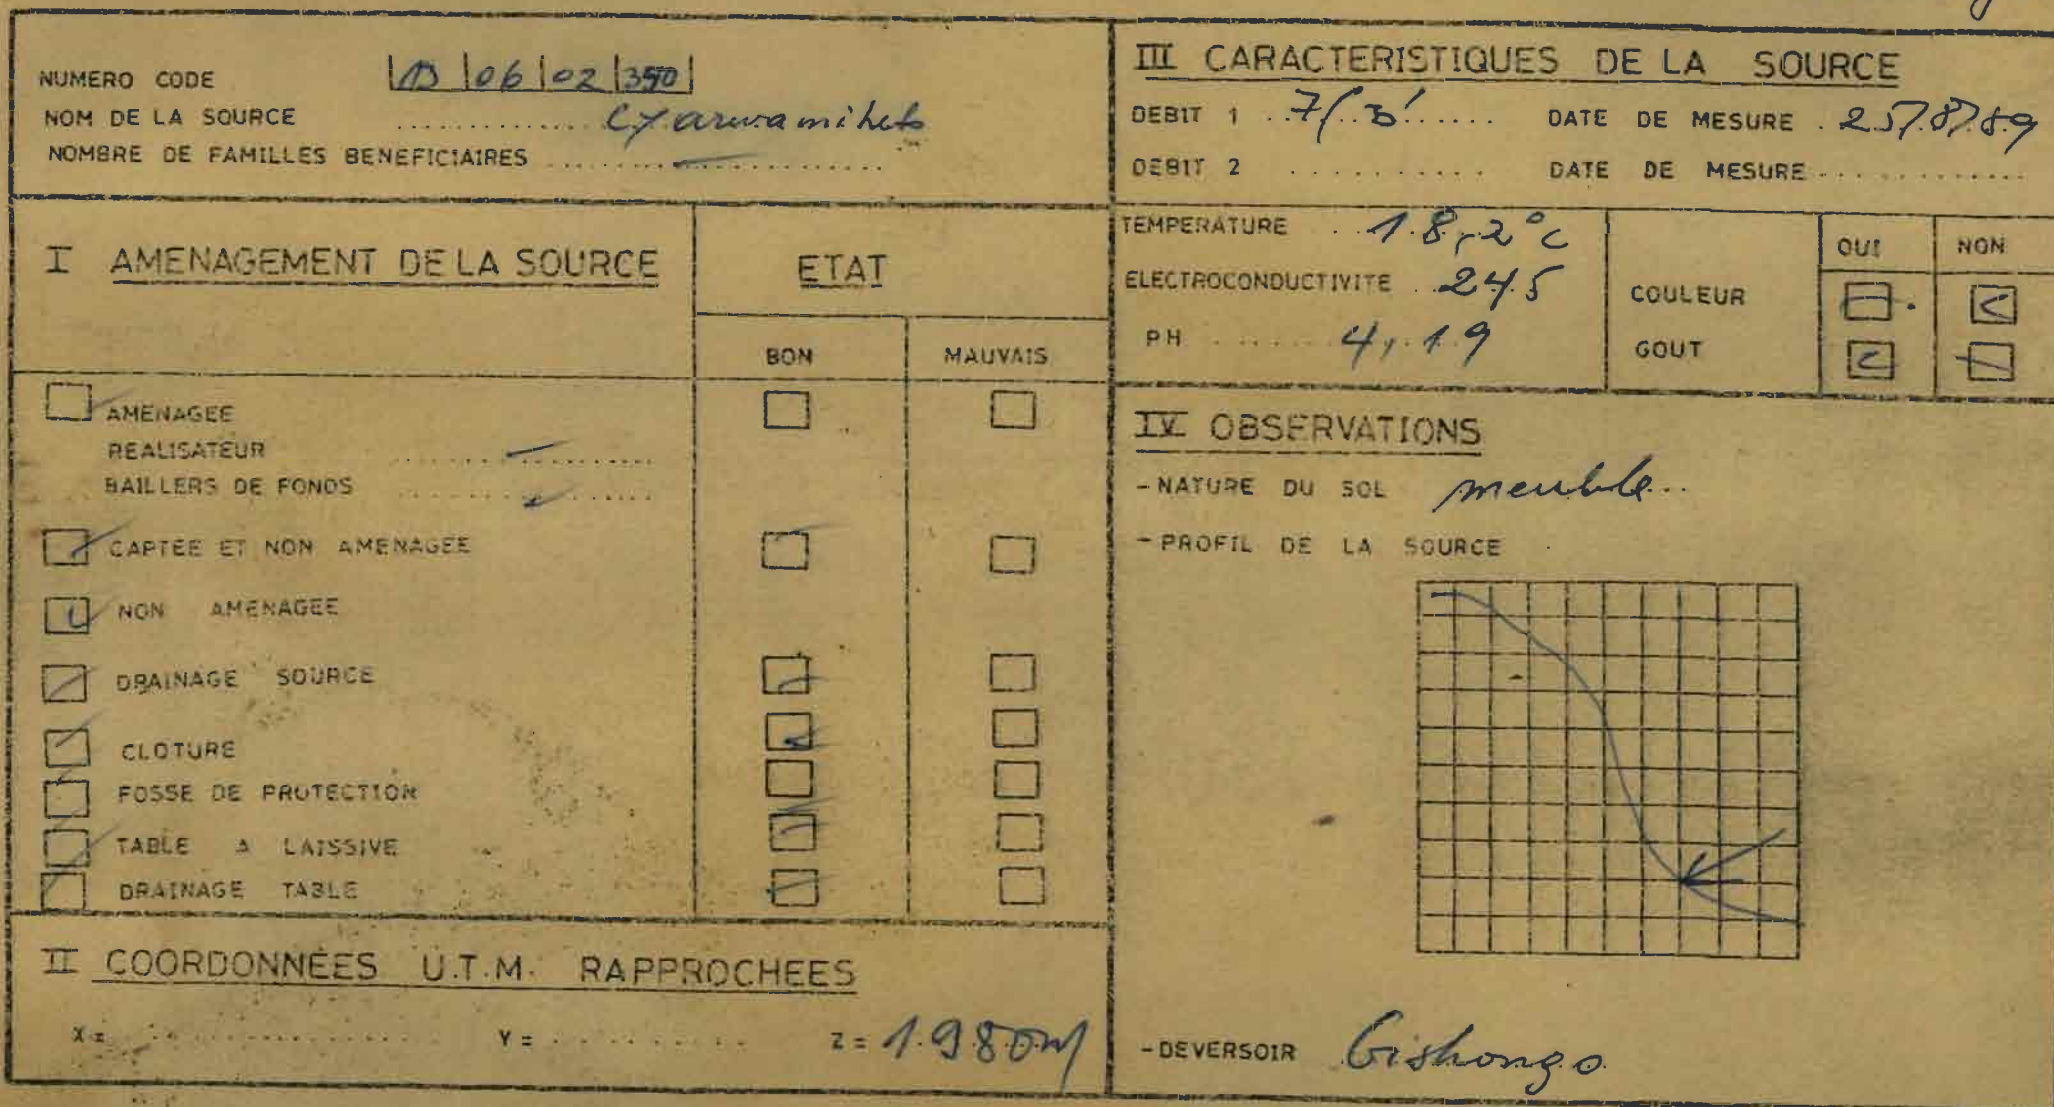 NUMERO CODE |13|06|02|350|
NOM DE LA SOURCE ............. Cyarwamiheto
NOMBRE DE FAMILLES BENEFICIAIRES ....................
I AMENAGEMENT DE LA SOURCE
ETAT
BON MAUVAIS
AMENAGEE
REALISATEUR ....................
BAILLERS DE FONDS ....................
CAPTEE ET NON AMENAGEE
NON AMENAGEE
DRAINAGE SOURCE
CLOTURE
FOSSE DE PROTECTION
TABLE A LAISSIVE
DRAINAGE TABLE
II COORDONNÉES U.T.M. RAPPROCHEES
X = ............... Y = .......... Z = 1.980m
III CARACTERISTIQUES DE LA SOURCE
DEBIT 1 DATE DE MESURE . 25/8/89
DEBIT 2 .......... DATE DE MESURE ............
TEMPERATURE .. 18,2°C
ELECTROCONDUCTIVITE .. 245
PH ....... 4,19
OUI NON
COULEUR
GOUT
IV OBSERVATIONS
- NATURE DU SOL meuble..
- PROFIL DE LA SOURCE
- DEVERSOIR Gishongo